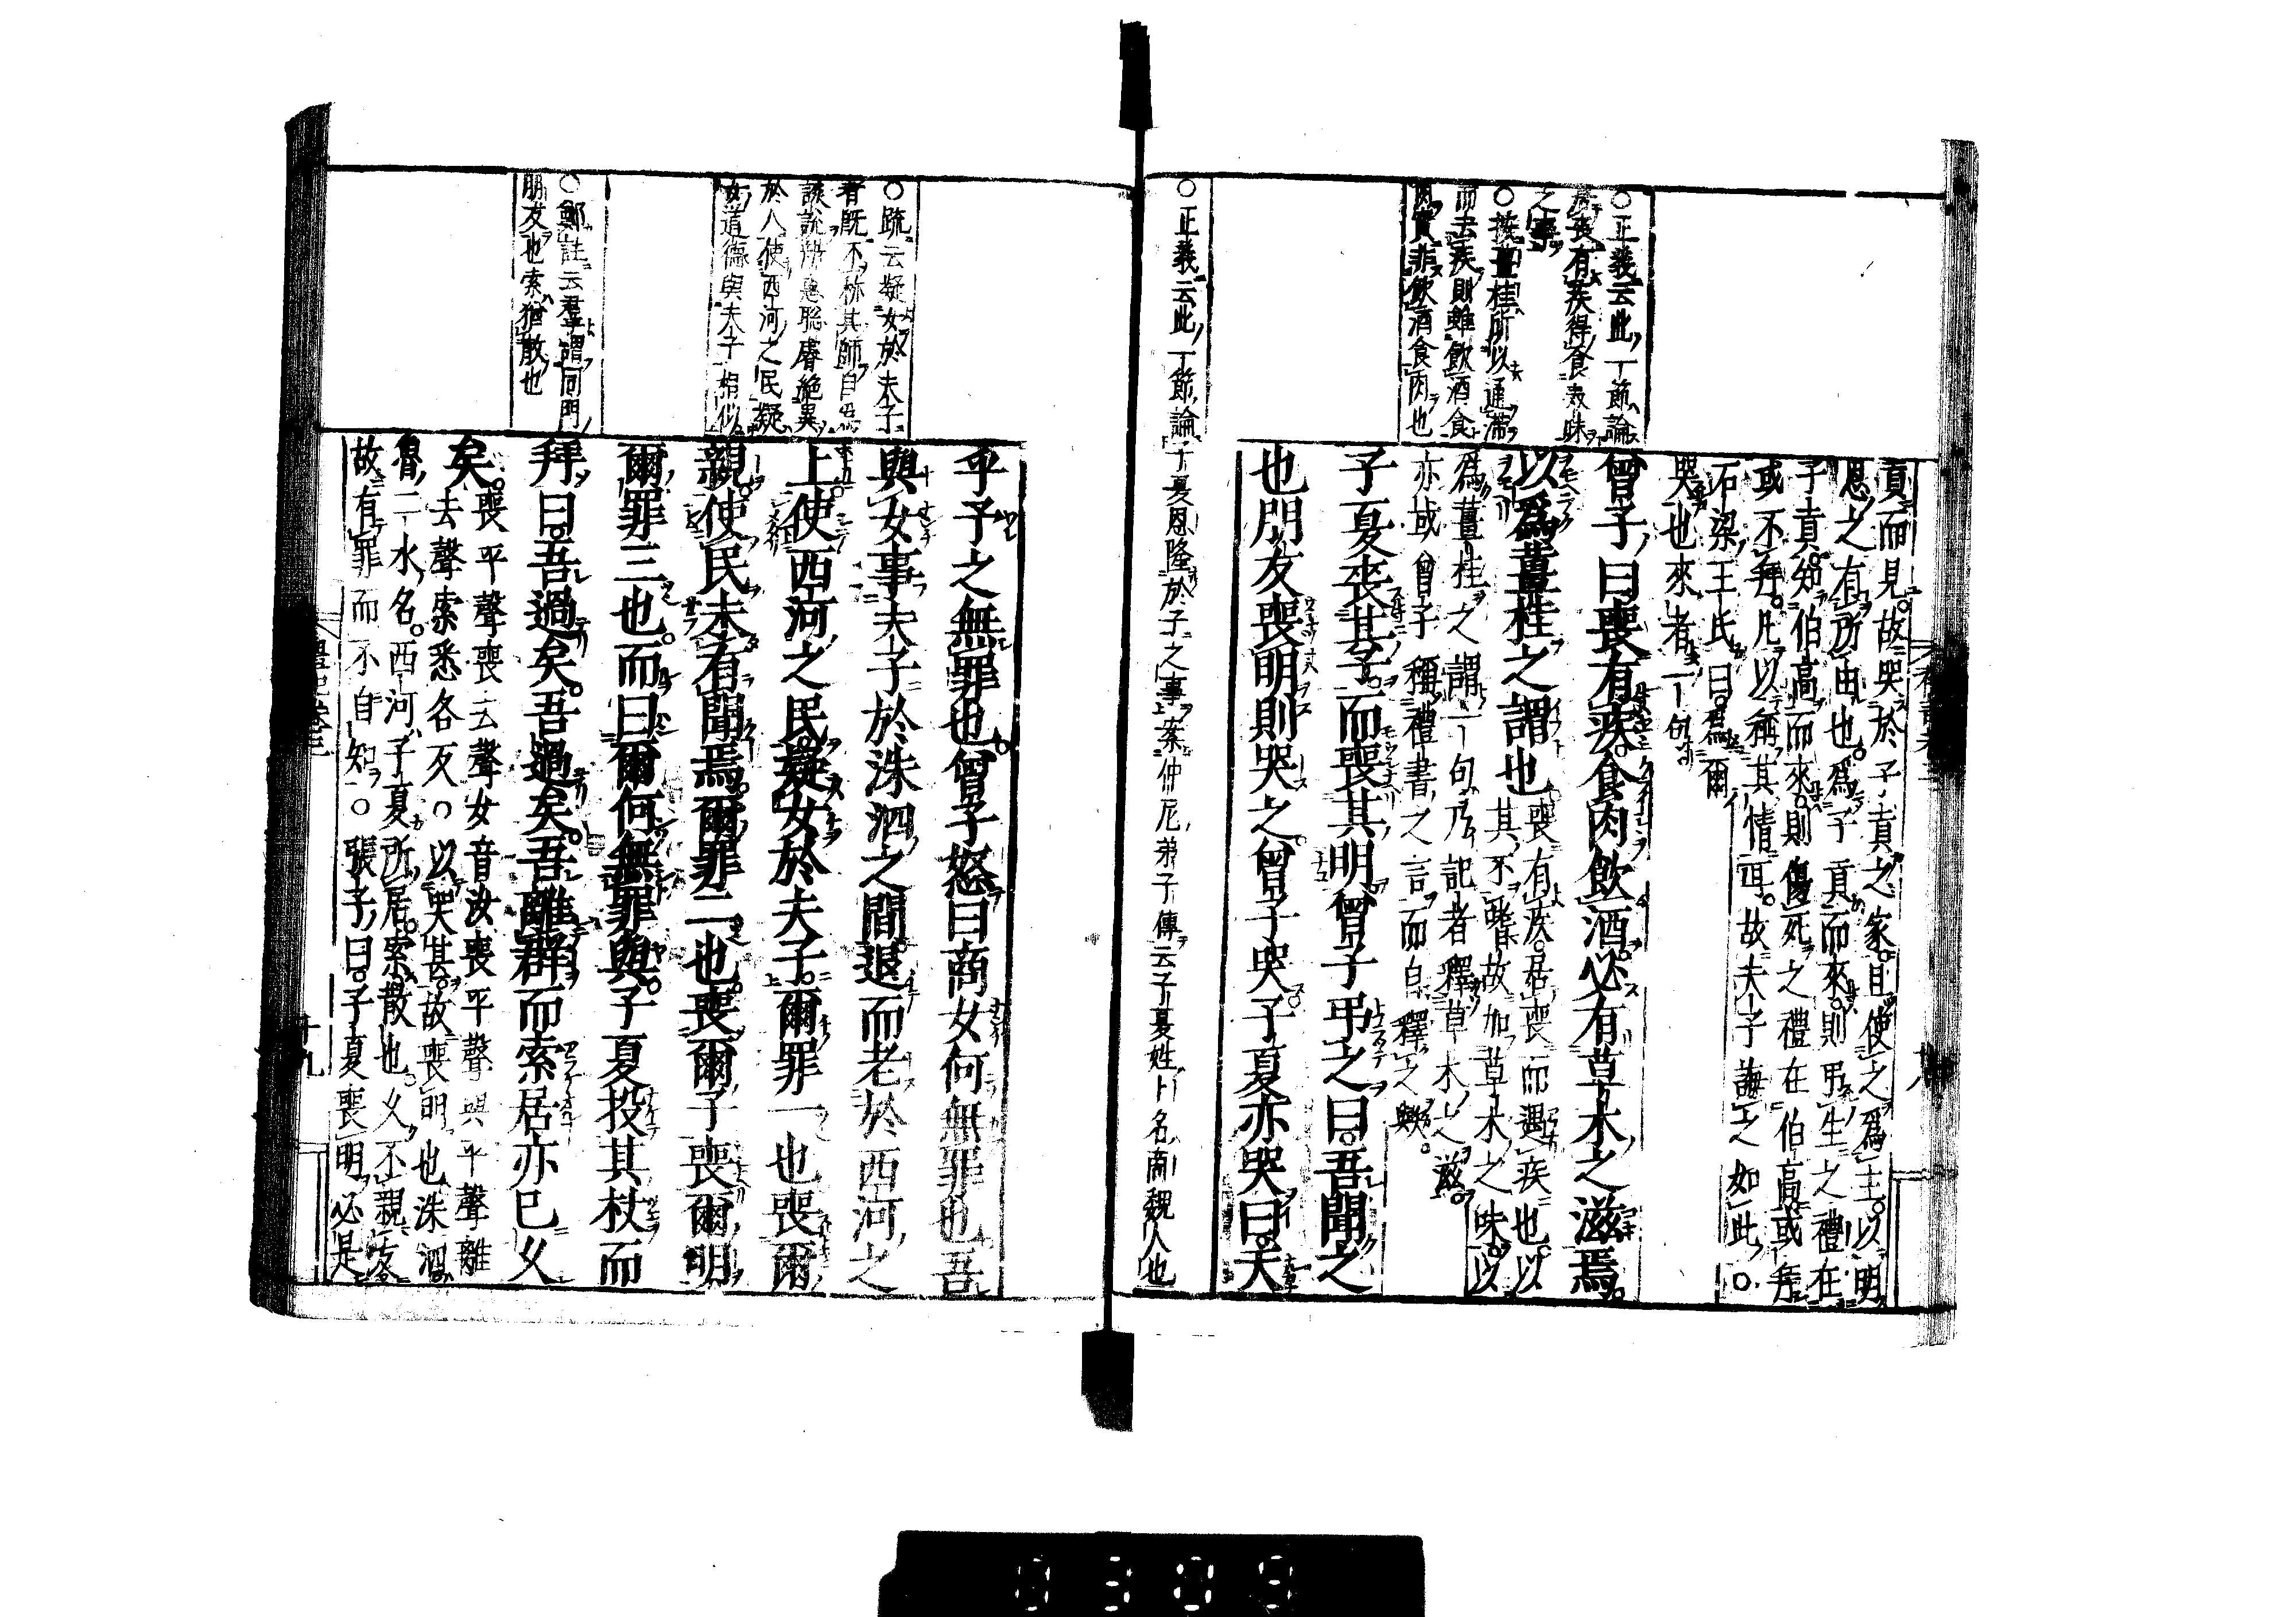 ○正義云此一節論
居喪有疾得食美味
之事
○按薑桂所以通滯
而去疾則雖飲酒食
肉實非飲酒食肉也
貢而見故哭於子貢之家且使之爲主以明
恩之有所由也爲子貢而來則弔生之禮在
子貢知伯高而來則傷死之禮在伯高或拜
或不拜凡以稱其情耳故夫子誨之如此○
石梁王氏曰爲爾
哭也來者一句
曾子曰喪有疾食肉飲酒必有草木之滋焉
以爲薑桂之謂也
喪有疾居喪而遇疾也以
其不嗜故加草木之味以
爲薑桂之謂一句乃記者釋草木之滋
亦或曾子稱禮書之言而自釋之歟
子夏喪其子而喪其明曾子弔之曰吾聞之
也朋友喪明則哭之曾子哭子夏亦哭曰天
○正義云此一節論子夏恩隆於子之事案仲尼弟子傳云子夏姓卜名商魏人也
○疏云疑女於夫子
者既不稱其師自爲
談說辨慧聰睿絶異
於人使西河之民疑
女道德與夫子相似
○鄭註云羣謂同門
朋友也索猶散也
乎予之無罪也曾子怒曰商女何無罪也吾
與女事夫子於洙泗之間退而老於西河之
上使西河之民疑女於夫子爾罪一也喪爾
親使民未有聞焉爾罪二也喪爾子喪爾明
爾罪三也而曰爾何無罪與子夏投其杖而
拜曰吾過矣吾過矣吾離群而索居亦已久
矣
喪平聲喪去聲女音汝喪平聲與平聲離
去聲索悉各反○以哭甚故喪明也洙泗
魯二水名西河子夏所居索散也久不親友
故有罪而不自知○張子曰子夏喪明必是
禮記卷三
十九